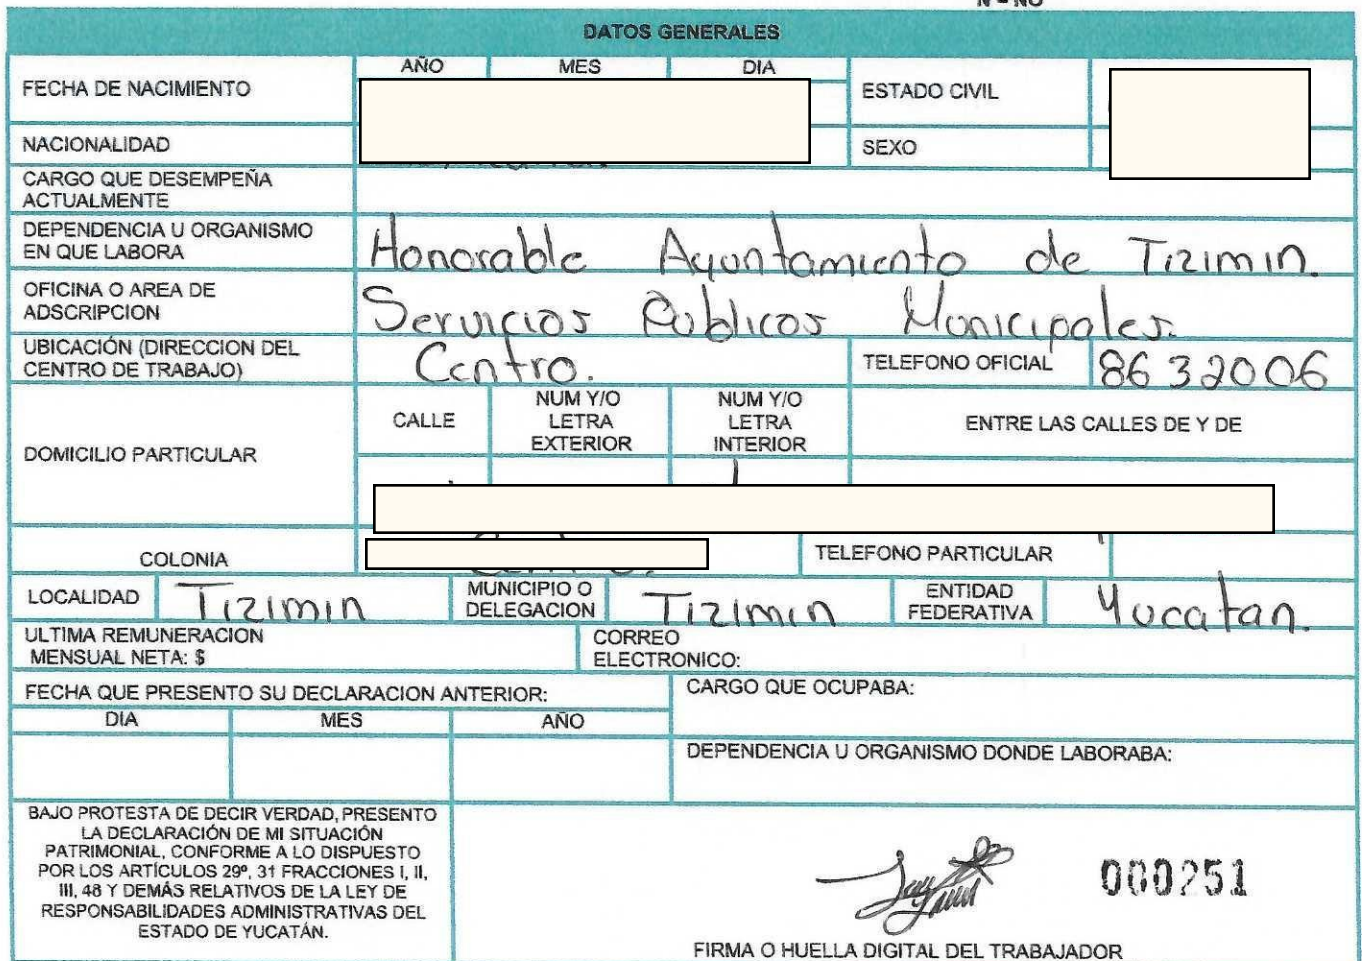 N = NO
DATOS GENERALES
AÑO MES DIA
FECHA DE NACIMIENTO ESTADO CIVIL
NACIONALIDAD SEXO
CARGO QUE DESEMPEÑA
ACTUALMENTE
DEPENDENCIA U ORGANISMO
EN QUE LABORA Honorable Ayuntamiento de Tizimin.
OFICINA O AREA DE
ADSCRIPCION Servicios Publicos Municipales.
UBICACIÓN (DIRECCION DEL
CENTRO DE TRABAJO) Centro. TELEFONO OFICIAL 8632006
DOMICILIO PARTICULAR CALLE NUM Y/O
LETRA
EXTERIOR NUM Y/O
LETRA
INTERIOR ENTRE LAS CALLES DE Y DE
COLONIA TELEFONO PARTICULAR
LOCALIDAD Tizimin MUNICIPIO O
DELEGACION Tizimin ENTIDAD
FEDERATIVA Yucatan.
ULTIMA REMUNERACION
MENSUAL NETA: $ CORREO
ELECTRONICO:
FECHA QUE PRESENTO SU DECLARACION ANTERIOR: CARGO QUE OCUPABA:
DIA MES AÑO
DEPENDENCIA U ORGANISMO DONDE LABORABA:
BAJO PROTESTA DE DECIR VERDAD, PRESENTO
LA DECLARACIÓN DE MI SITUACIÓN
PATRIMONIAL, CONFORME A LO DISPUESTO
POR LOS ARTÍCULOS 29º, 31 FRACCIONES I, II,
III, 48 Y DEMÁS RELATIVOS DE LA LEY DE
RESPONSABILIDADES ADMINISTRATIVAS DEL
ESTADO DE YUCATÁN.
000251
FIRMA O HUELLA DIGITAL DEL TRABAJADOR